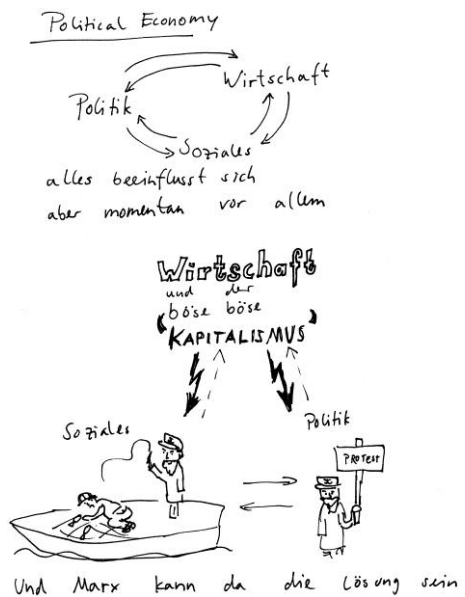 Political Economy
Wirtschaft
Politik
Soziales
alles beeinflusst sich
aber momentan vor allem
Wirtschaft
und der
böse böse
KAPITALISMUS
Soziales
Politik
PROTEST
Und Marx kann da die Lösung sein